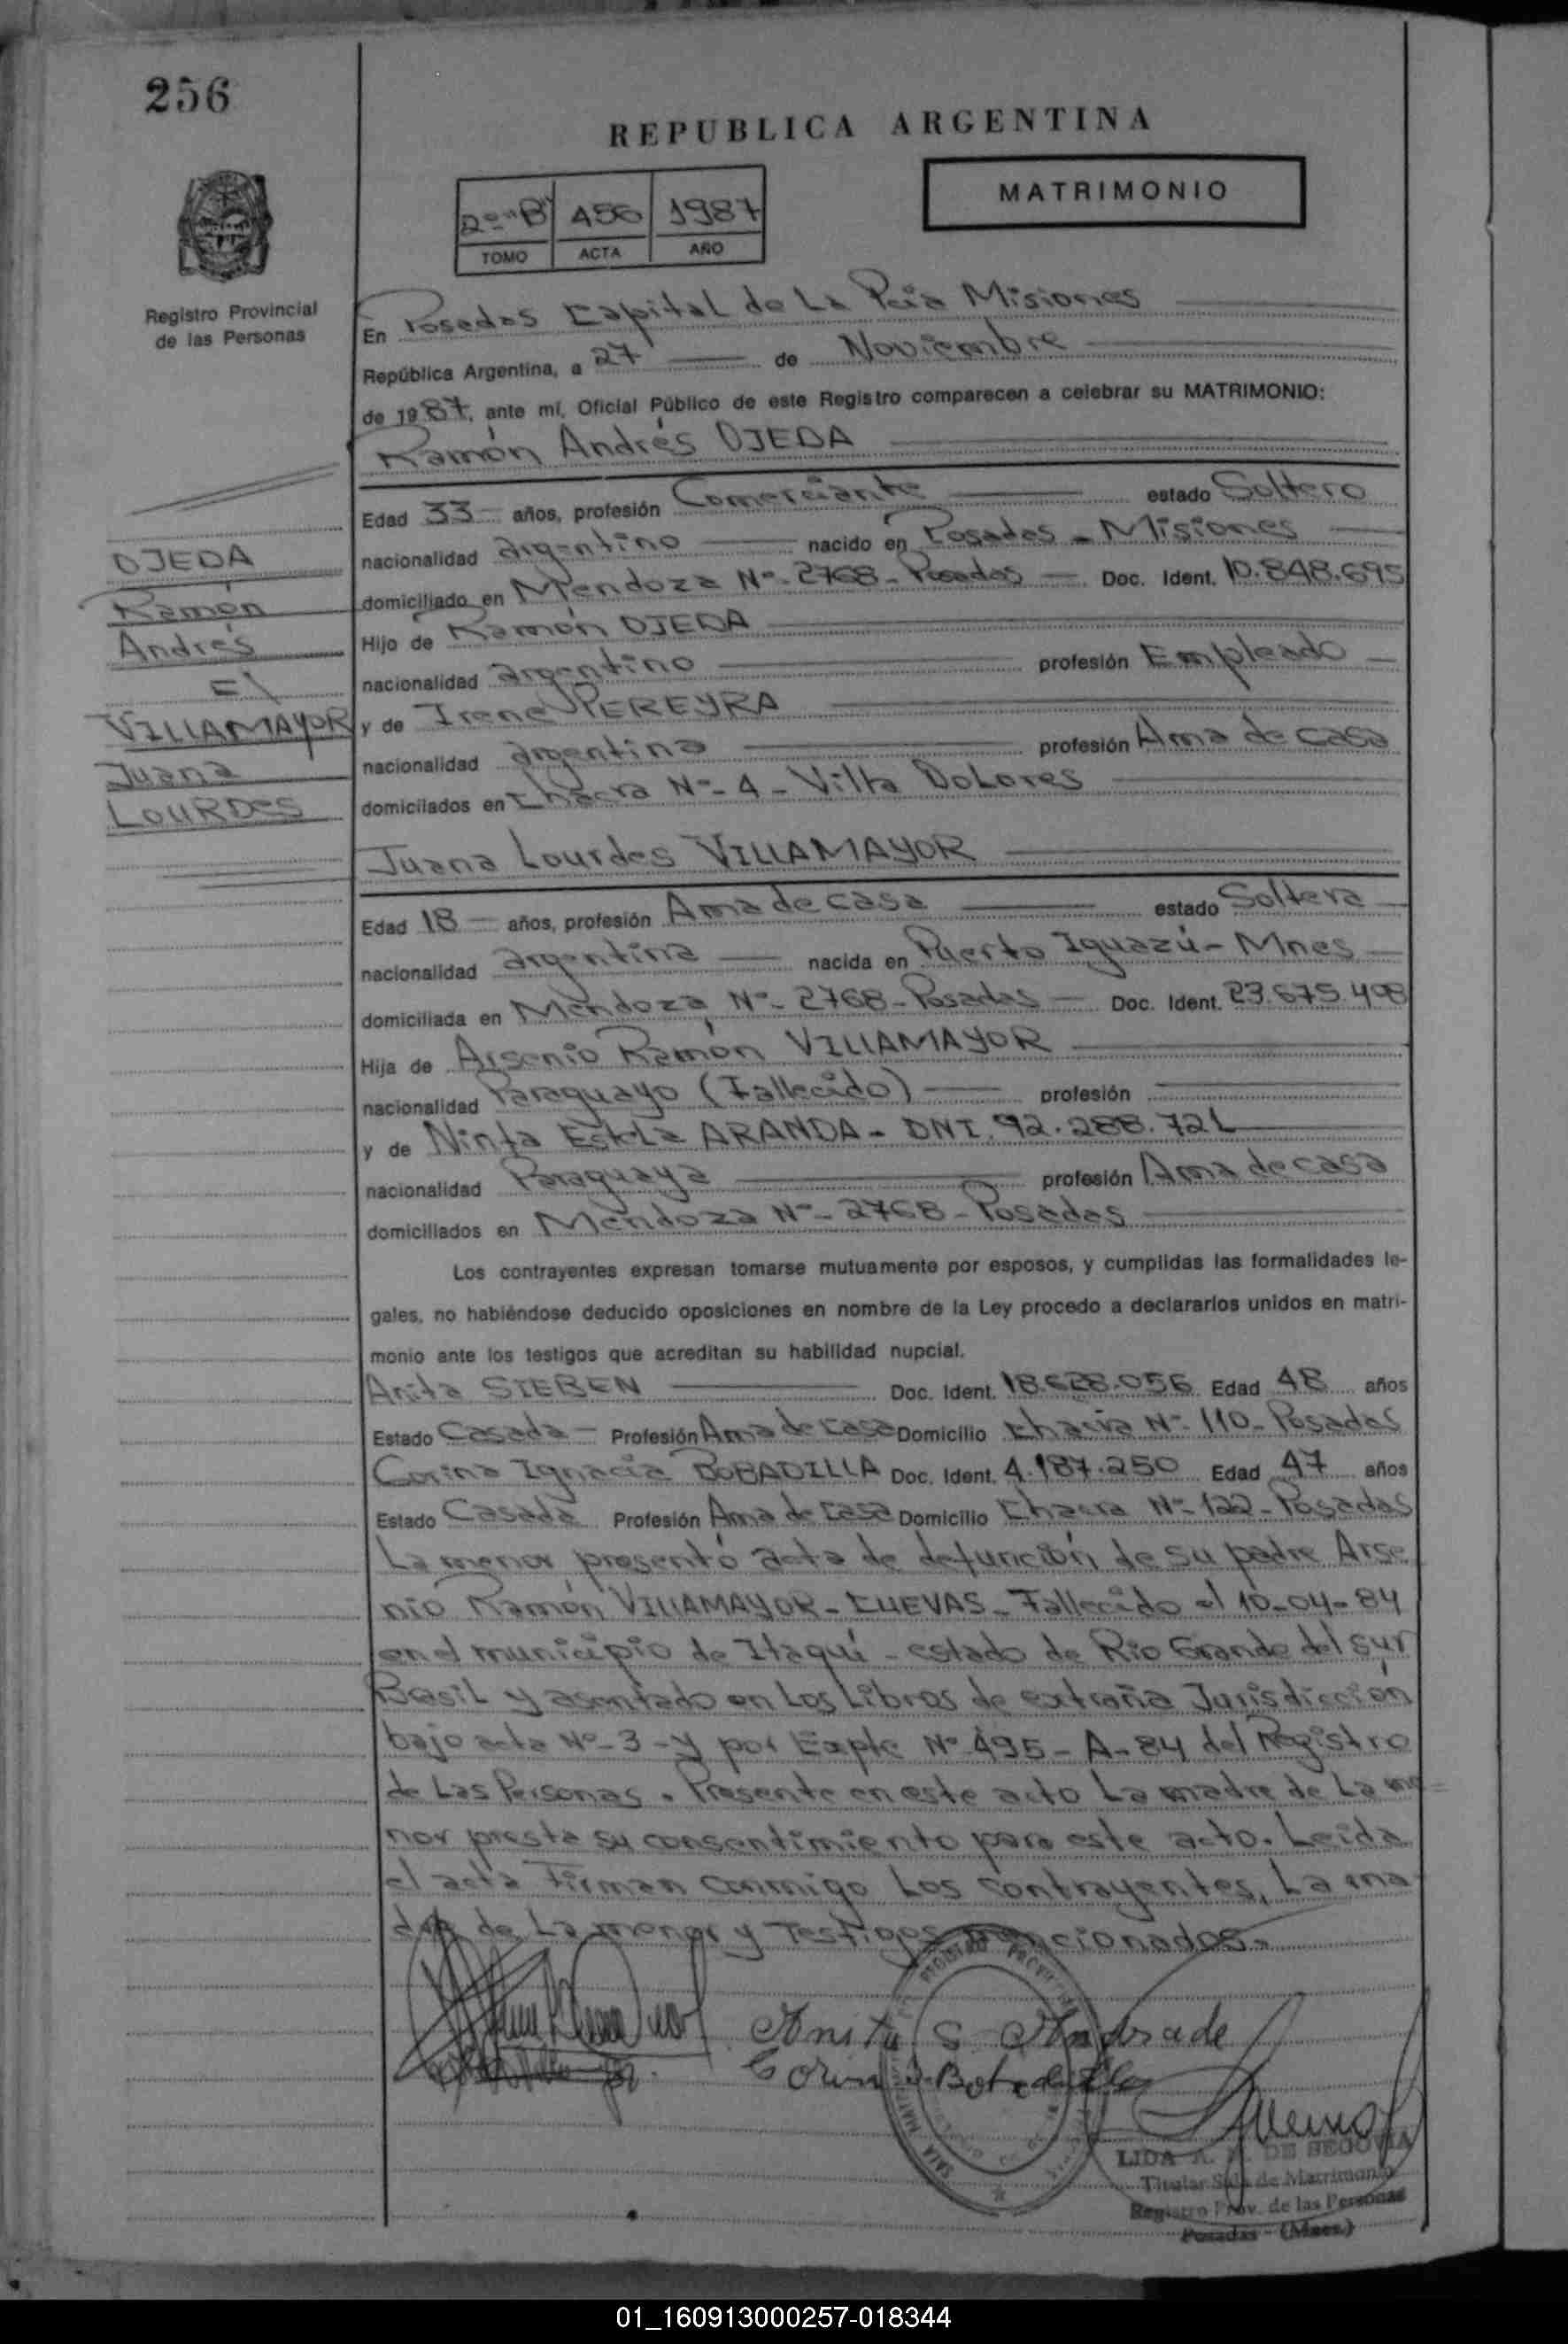 256
REPUBLICA ARGENTINA
MATRIMONIO
2º "B" 456 1987
TOMO ACTA AÑO
Registro Provincial
de las Personas
En Posadas Capital de La Pcia Misiones
República Argentina, a 27 de Noviembre
de 1987, ante mí, Oficial Público de este Registro comparecen a celebrar su MATRIMONIO:
Ramón Andrés OJEDA
Edad 33 años, profesión Comerciante estado Soltero
nacionalidad argentino nacido en Posadas - Misiones
domiciliado en Mendoza Nº- 2768 - Posadas Doc. Ident. 10.848.695
Hijo de Ramón OJEDA
nacionalidad argentino profesión Empleado
y de Irene PEREYRA
nacionalidad argentina profesión Ama de casa
domiciliados en Chacra Nº- 4 - Villa Dolores
OJEDA
Ramón
Andrés
c/
VILLAMAYOR
Juana
LOURDES
Juana Lourdes VILLAMAYOR
Edad 18 años, profesión Ama de casa estado Soltera
nacionalidad argentina nacida en Puerto Iguazú - Mnes
domiciliada en Mendoza Nº- 2768 - Posadas Doc. Ident. 23.675.498
Hija de Arsenio Ramón VILLAMAYOR
nacionalidad Paraguayo (Fallecido) profesión
y de Ninfa Estela ARANDA - DNI. 92.288.721
nacionalidad Paraguaya profesión Ama de casa
domiciliados en Mendoza Nº- 2768 - Posadas
Los contrayentes expresan tomarse mutuamente por esposos, y cumplidas las formalidades le-
gales, no habiéndose deducido oposiciones en nombre de la Ley procedo a declararlos unidos en matri-
monio ante los testigos que acreditan su habilidad nupcial.
Anita SIEBEN Doc. Ident. 18.628.056 Edad 48 años
Estado Casada Profesión Ama de casa Domicilio Chacra Nº- 110 - Posadas
Corina Ignacia BOBADILLA Doc. Ident. 4.187.250 Edad 47 años
Estado Casada Profesión Ama de casa Domicilio Chacra Nº- 122 - Posadas
La menor presentó acta de defunción de su padre Arse
nio Ramón VILLAMAYOR - CUEVAS - Fallecido el 10-04-84
en el municipio de Itaquí - estado de Rio Grande del Sur
Brasil y asentado en Los Libros de extraña Jurisdicción
bajo acta Nº- 3 - y por Expte Nº 495 - A - 84 del Registro
de Las Personas. Presente en este acto La madre de La me
nor presta su consentimiento para este acto. Leída
el acta Firman conmigo Los contrayentes, La ma
dre de La menor y Testigos mencionados.
Anita S Andrade
Corina Bobadilla
LIDA A. DE SEGOVIA
Titular Sala de Matrimonio
Registro Prov. de las Personas
Posadas - (Mnes.)
01_160913000257-018344